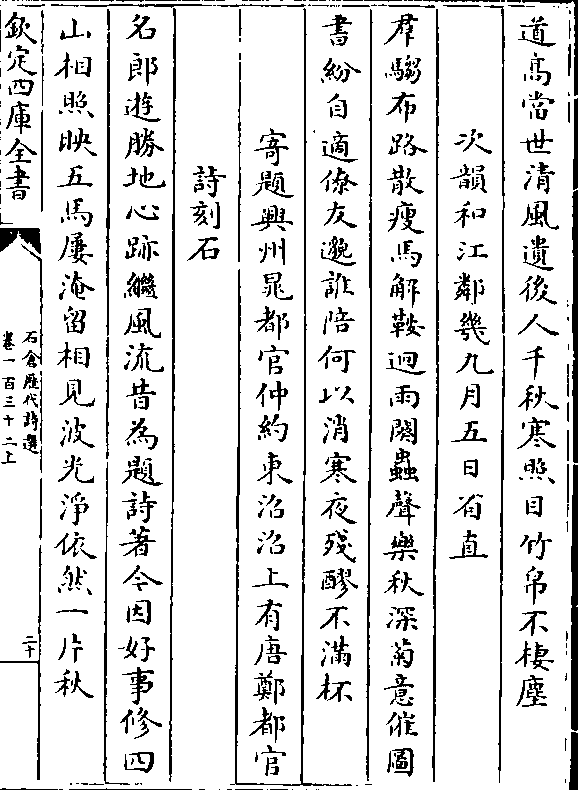 道高當世清風遺後人千秋寒照目竹帛不棲塵
次韻和江鄰幾九月五日省直
羣騶布路散瘦馬解鞍迴雨闋蟲聲樂秋深菊意催圖
書紛自適僚友邈誰陪何以消寒夜殘醪不滿杯
寄題興州晁都官仲約東沼沼上有唐鄭都官
詩刻石
名郎遊勝地心跡繼風流昔為題詩著今因好事修四
山相照映五馬屢淹留相見波光淨依然一片秋
欽定四庫全書
石倉歷代詩選
卷一百三十二上
二十